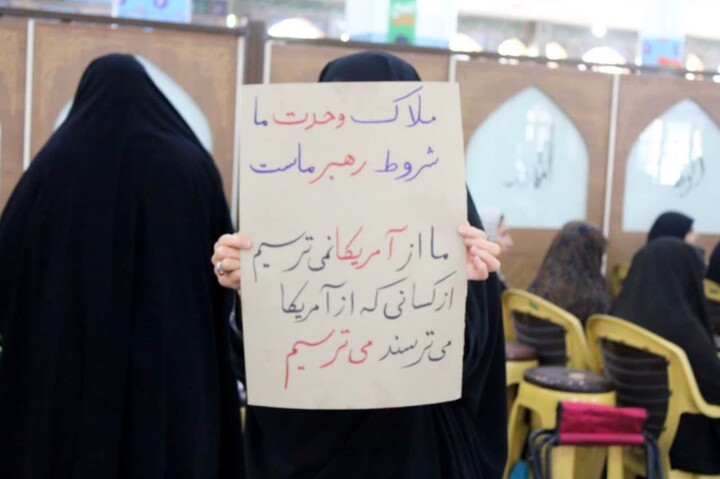 ملاک وحدت ما
شروط رهبر ماست
ما از آمریکا نمی ترسیم
از کسانی که از آمریکا
می ترسند می ترسیم